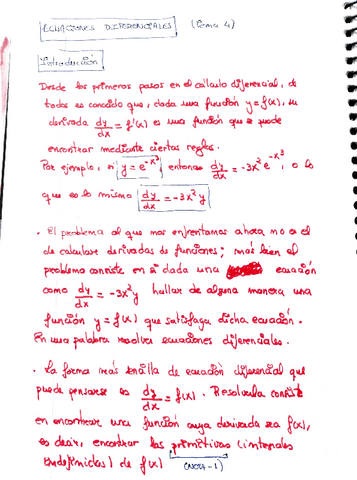 ECUACIONES DIFERENCIALES (tema 4)
Introducción
Desde los primeros pasos en el cálculo diferencial, de
todos es conocido que, dada una función y = f(x), su
derivada dy/dx = f'(x) es una función que se puede
encontrar mediante ciertas reglas.
Por ejemplo, si y = e^-x³, entonces dy/dx = -3x² e^-x³, o lo
que es lo mismo dy/dx = -3x² y
• El problema al que nos enfrentamos ahora no es el
de calcular derivadas de funciones; más bien el
problema consiste en si dada una ecuación
como dy/dx = -3x² y hallar de alguna manera una
función y = f(x) que satisfaga dicha ecuación.
En una palabra resolver ecuaciones diferenciales.
• La forma más sencilla de ecuación diferencial que
puede pensarse es dy/dx = f(x). Resolverla consiste
en encontrar una función cuya derivada sea f(x),
es decir, encontrar las primitivas (integrales
indefinidas) de f(x)
(NOTA-1)